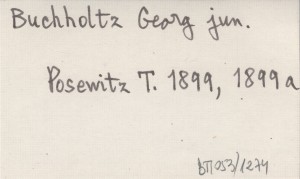 Buchholtz Georg jun.
Posewitz T. 1899, 1899a
BП053/1274